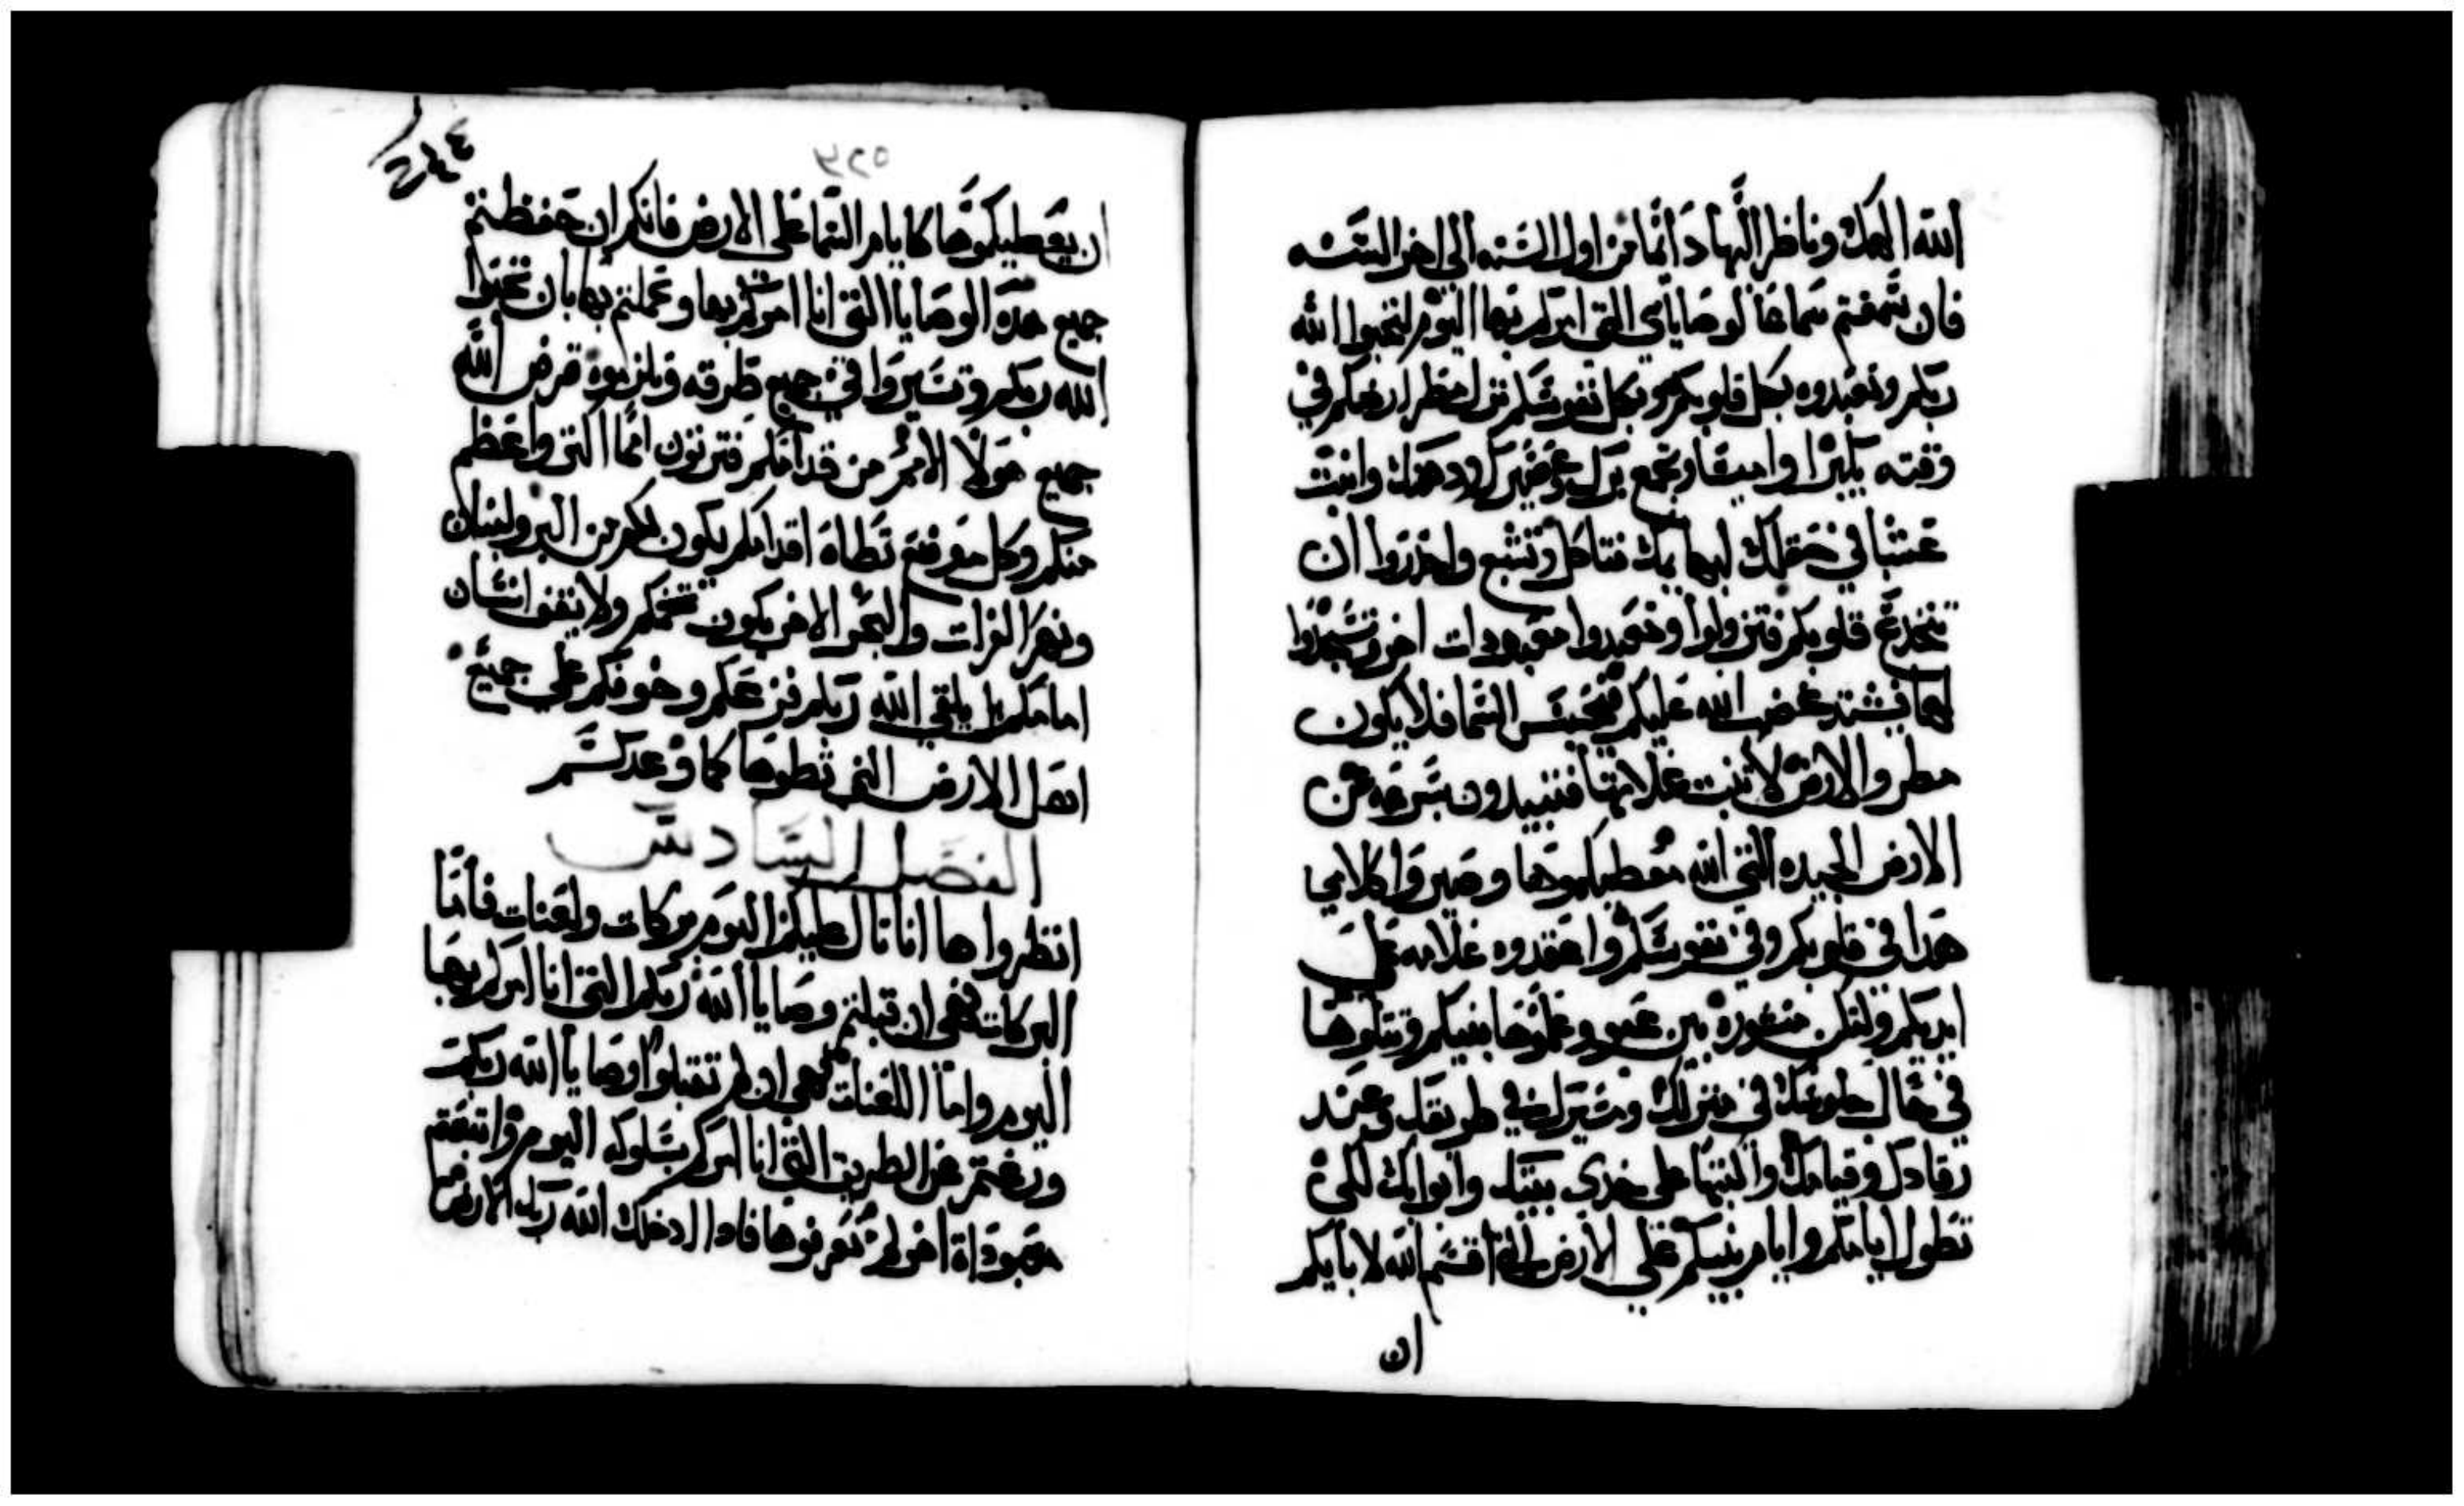 الله الهك وناظر اليها دائما من اول السنه الي اخر السنه
فان سمعتم سماعا لوصاياي التي امركم بها اليوم لتحبوا الله
ربكم وتعبدوه بكل قلوبكم وبكل نفوسكم انزل مطر ارضكم في
وقته بكيرا واميقا وتجمع برك وعصيرك ودهنك وانبت
عشبا في حقلك لبهايمك فتاكل وتشبع واحذروا ان
تنخدع قلوبكم فتزولوا وتعبدوا معبودات اخر وتسجدوا
لها فيشتد غضب الله عليكم فيحبس السما فلا يكون
مطر والارض لا تنبت غلاتها فتبيدون بسرعه من
الارض الجيده التي الله معطيكموها وصيروا كلامي
هدا في قلوبكم وفي نفوسكم واعقدوه علامه علي
ايديكم ولتكن منشوره بين عينيك وعلموها بنيكم وتتلوها
في حال جلوسك في منزلك ومسيرك في طريقك وعند
رقادك وقيامك واكتبها علي خدي بيتك وابوابك لكي
تطول ايامكم وايام بنيكم علي الارض التي اقسم الله لابايكم
ان
٥٢٢
٢٤٤
ان يعطيكموها كايام السما علي الارض فانكم ان حفظتم
جميع هده الوصايا التي انا امركم بها وعملتم بها بان تحبوا
الله ربكم وتسيروا في جميع طرقه وتلزموه قرض الله
جميع هولا الامم من قدامكم فترتون امما اكثر واعظم
منكم وكل موضع تطاه اقدامكم يكون لكم من البر ولبنان
ونهر الفرات والبحر الاخر يكون تخمكم ولا يقف انسان
امامكم بل يلقي الله ربكم فزعكم وخوفكم علي جميع
اهل الارض التي تطوها كما وعدكم
الفصل السادس
انظروا ها انا تال عليكم اليوم بركات ولعنات فاما
البركات فهي ان قبلتم وصايا الله ربكم التي انا امركم بها
اليوم واما اللعنات فهي ان لم تقبلوا وصايا الله ربكم
وزغتم عن الطريق التي انا امركم بسلوكه اليوم واتبعتم
معبوداة اخر لم تعرفوها فادا ادخلك الله ربك الارض